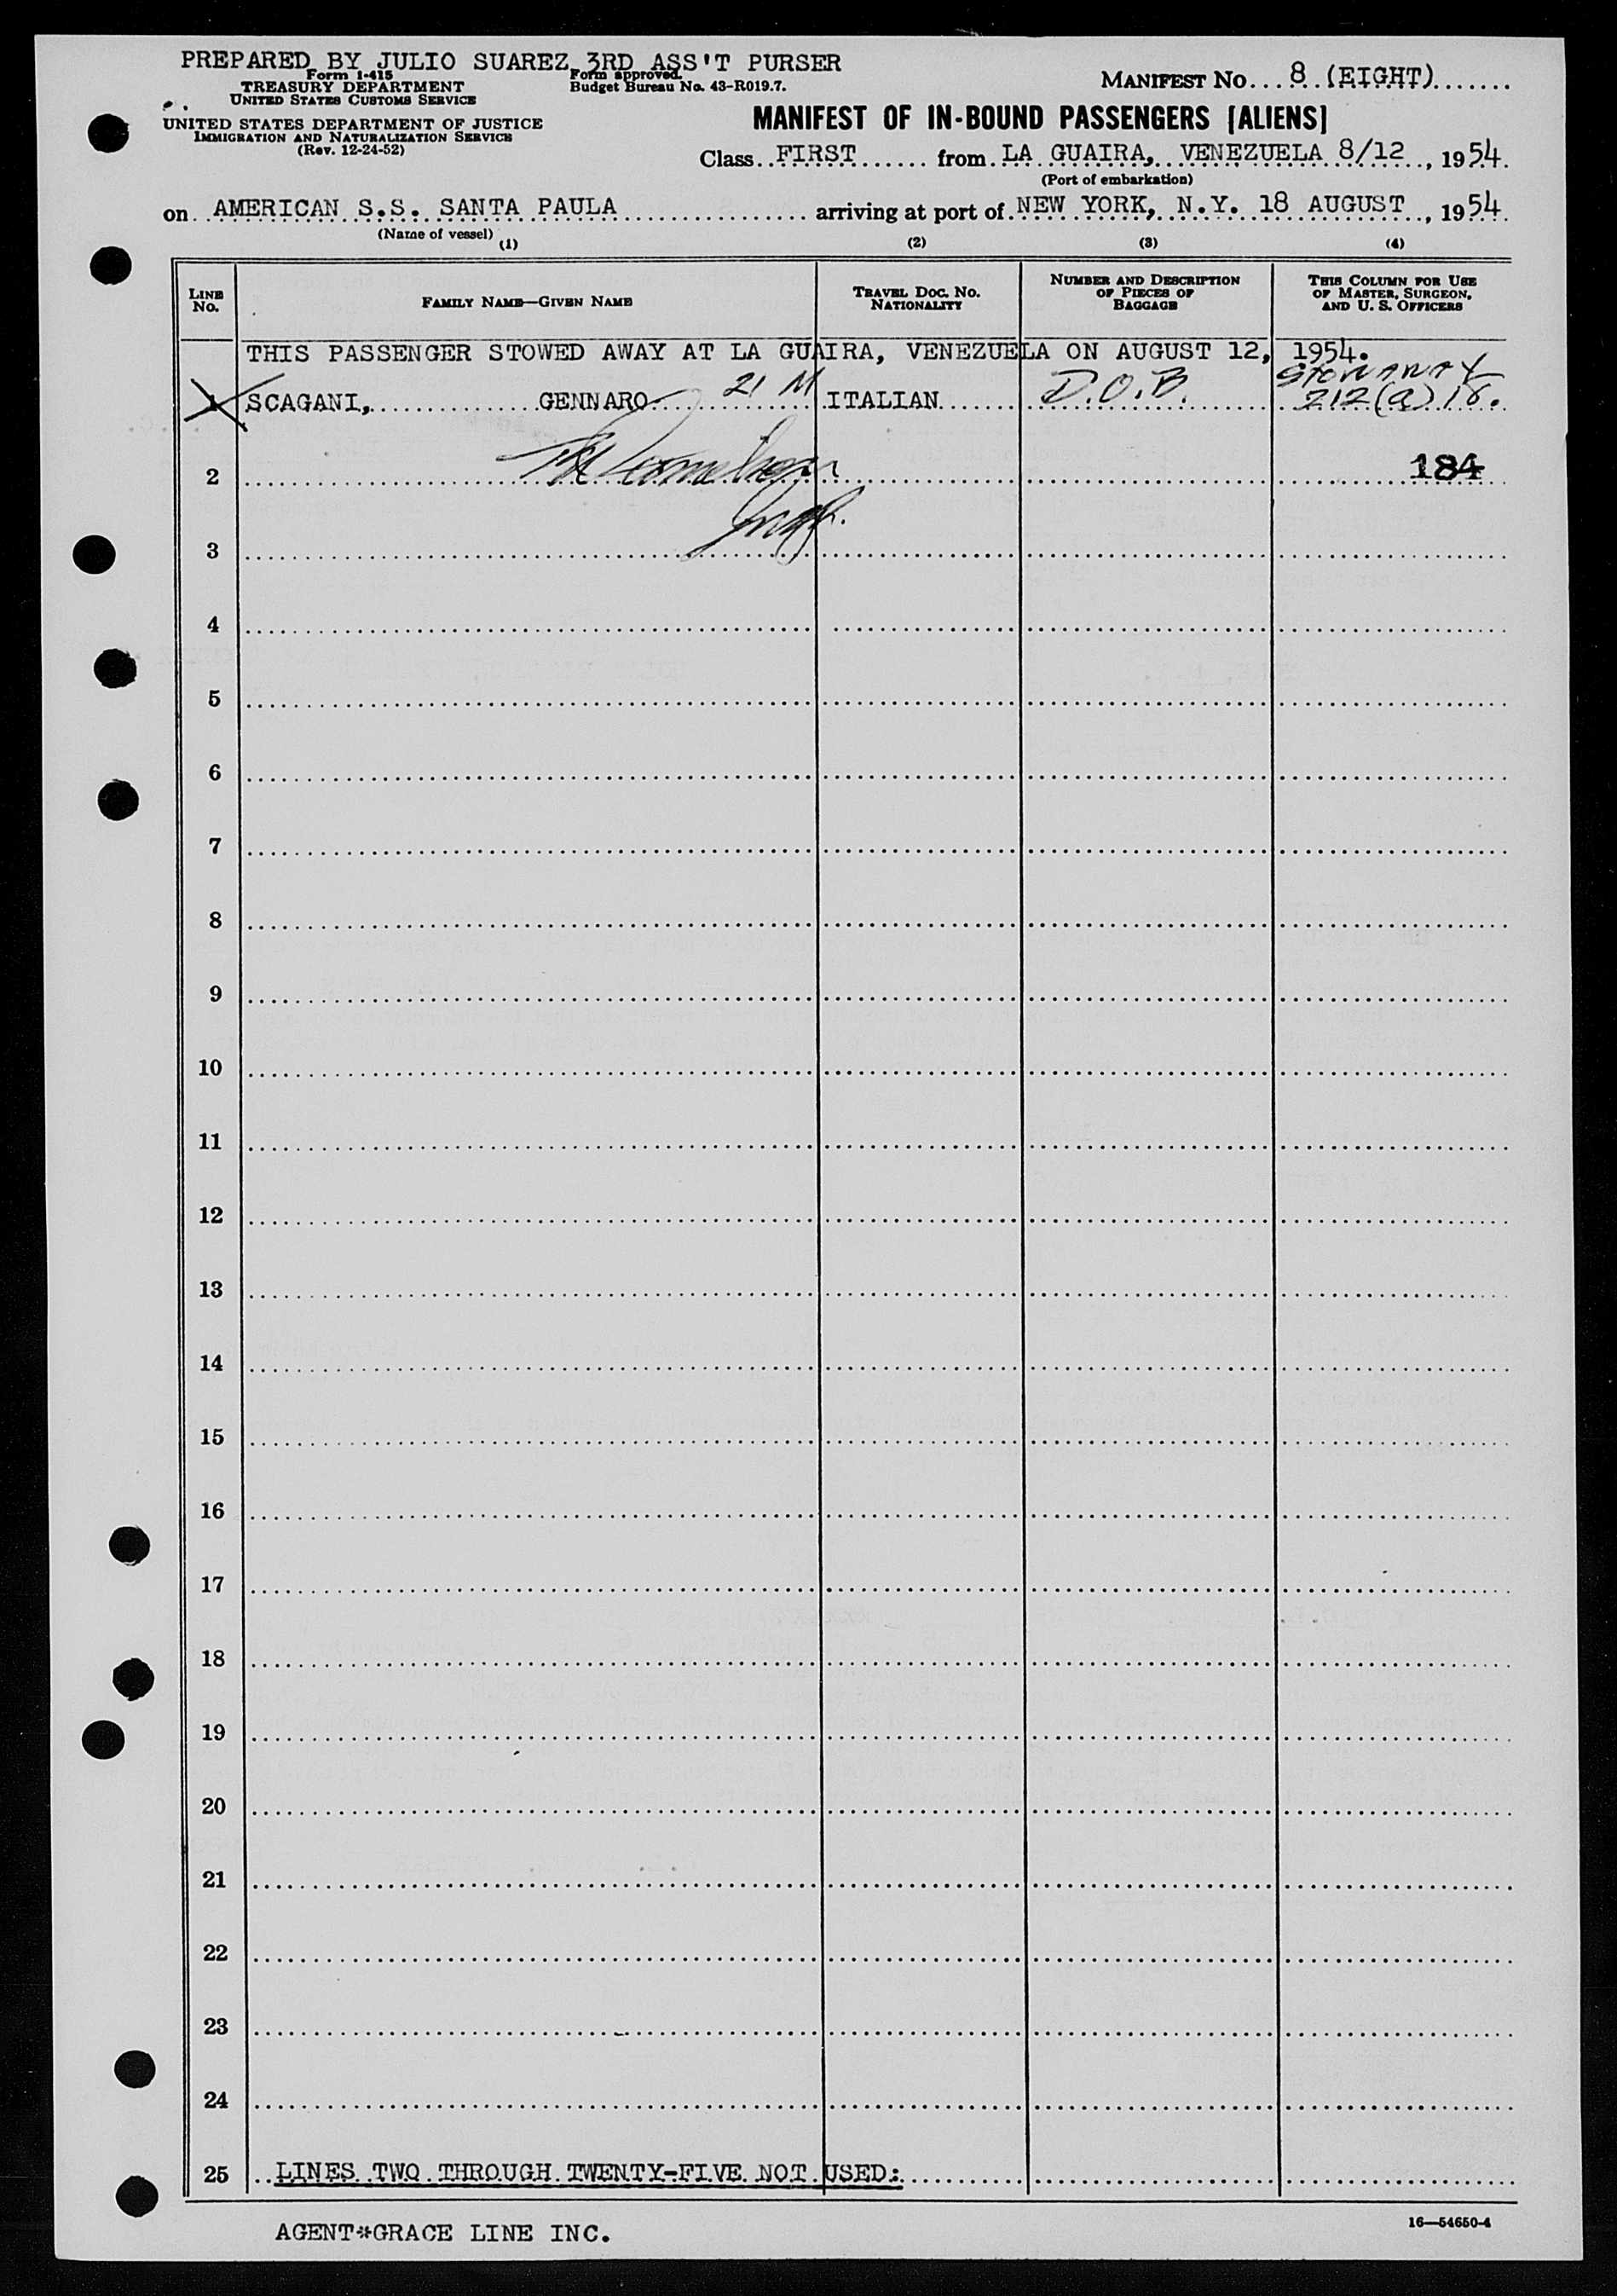 PREPARED BY JULIO SUAREZ 3RD ASS'T PURSER
Form I-415
TREASURY DEPARTMENT
UNITED STATES CUSTOMS SERVICE
Form approved.
Budget Bureau No. 43-R019.7.
MANIFEST NO. 8 (EIGHT)
UNITED STATES DEPARTMENT OF JUSTICE
IMMIGRATION AND NATURALIZATION SERVICE
(Rev. 12-24-52)
MANIFEST OF IN-BOUND PASSENGERS [ALIENS]
Class FIRST from LA GUAIRA, VENEZUELA 8/12, 1954.
(Port of embarkation)
on AMERICAN S.S. SANTA PAULA arriving at port of NEW YORK, N.Y. 18 AUGUST, 1954.
(Name of vessel)
(1) (2) (3) (4)
LINE NO.
FAMILY NAME—GIVEN NAME
TRAVEL DOC. NO.
NATIONALITY
NUMBER AND DESCRIPTION
OF PIECES OF
BAGGAGE
THIS COLUMN FOR USE
OF MASTER, SURGEON,
AND U. S. OFFICERS
THIS PASSENGER STOWED AWAY AT LA GUAIRA, VENEZUELA ON AUGUST 12, 1954.
Stowaway
1 SCAGANI, GENNARO 21 M ITALIAN D.O.B. 212(a)18.
2 184
3
4
5
6
7
8
9
10
11
12
13
14
15
16
17
18
19
20
21
22
23
24
25 LINES TWO THROUGH TWENTY-FIVE NOT USED:
AGENT*GRACE LINE INC.
16—54650-4